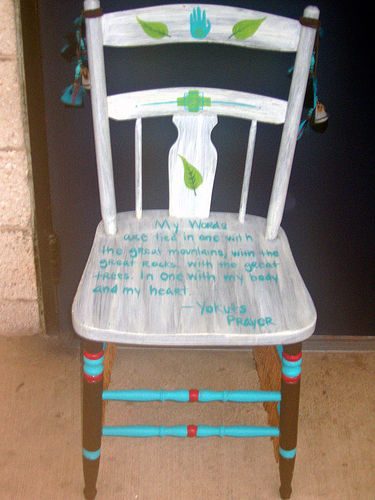 My Words
are tied in one with
the great mountains, with the
great rocks with the great
trees. In one with my body
and my heart.
— Yokuts
Prayer